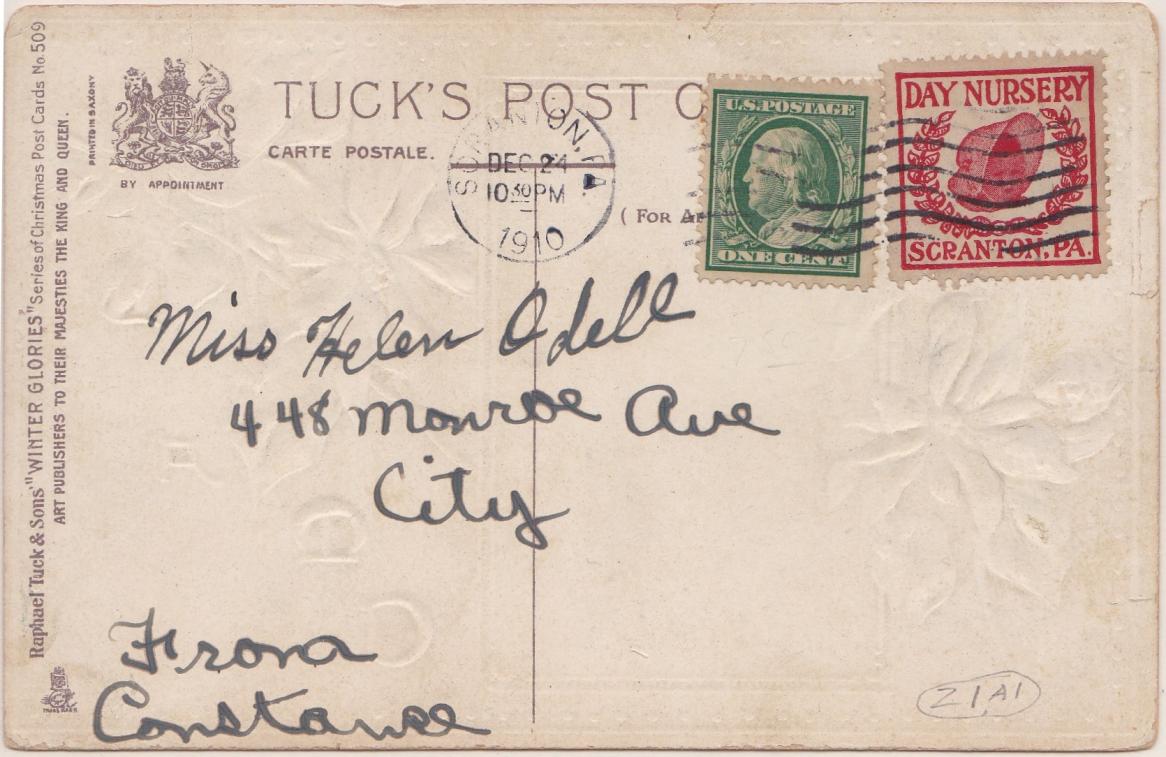 Raphael Tuck & Sons' "WINTER GLORIES" Series of Christmas Post Cards No. 509
ART PUBLISHERS TO THEIR MAJESTIES THE KING AND QUEEN.
PRINTED IN SAXONY
BY APPOINTMENT
TRADE MARK
TUCK'S POST C
CARTE POSTALE.
(FOR A
SCRANTON, PA.
DEC 24
10 30 PM
1910
U.S. POSTAGE
ONE CENT
DAY NURSERY
SCRANTON, PA.
Miss Helen Odell
448 Monroe Ave
City
From
Constance
Z1A1